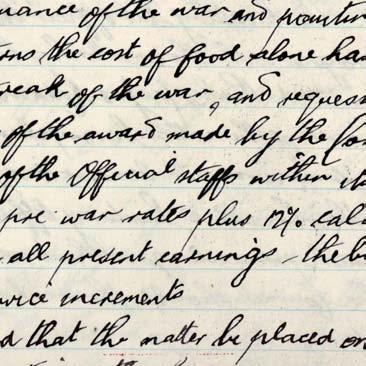 nuance of the war and pointin
rns the cost of food alone has
reak of the war, and reques
of the award made by the Co
of the Official staffs within it
pre war rates plus 12% calc
all present earnings - the b
rvice increments
d that the matter be placed on